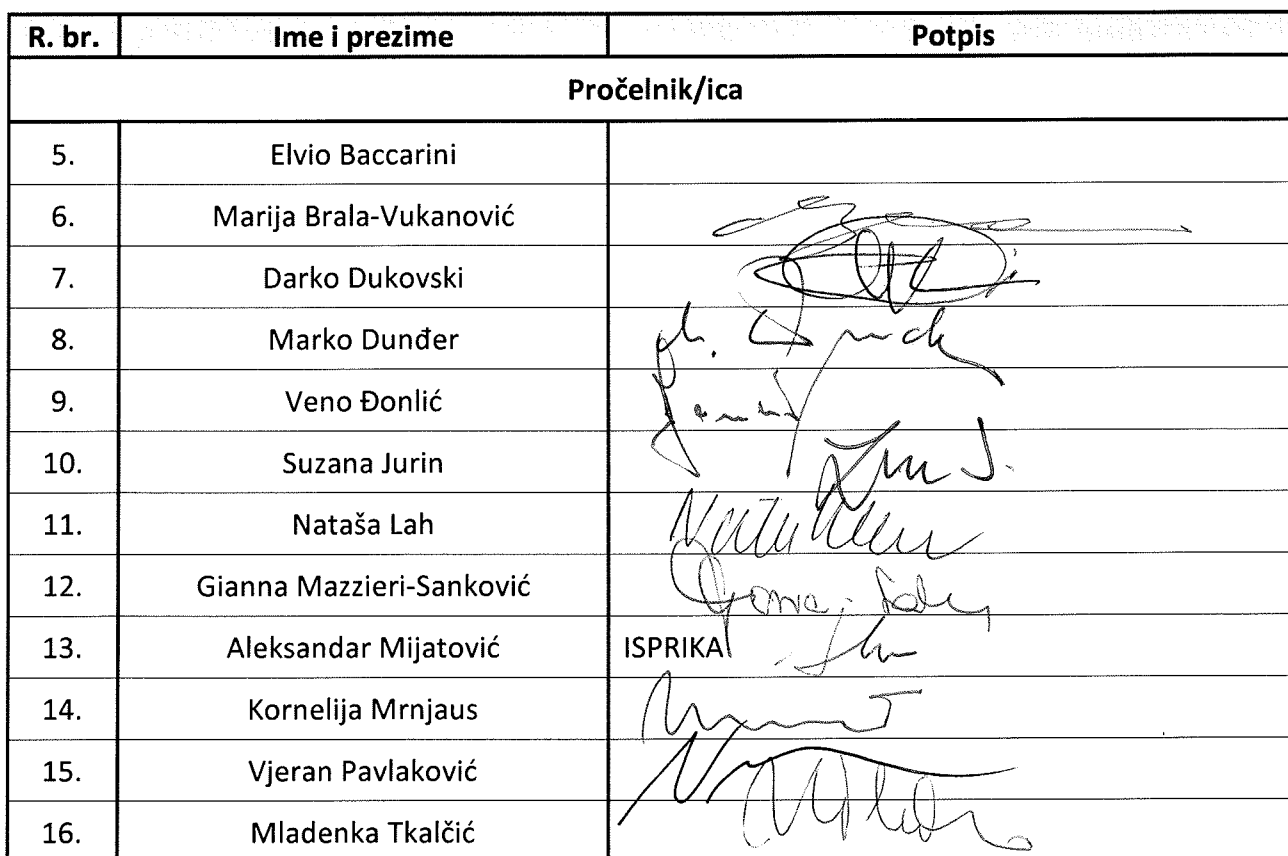 R. br. Ime i prezime Potpis
Pročelnik/ica
5. Elvio Baccarini
6. Marija Brala-Vukanović
7. Darko Dukovski
8. Marko Dunđer
9. Veno Đonlić
10. Suzana Jurin
11. Nataša Lah
12. Gianna Mazzieri-Sanković
13. Aleksandar Mijatović ISPRIKA
14. Kornelija Mrnjaus
15. Vjeran Pavlaković
16. Mladenka Tkalčić